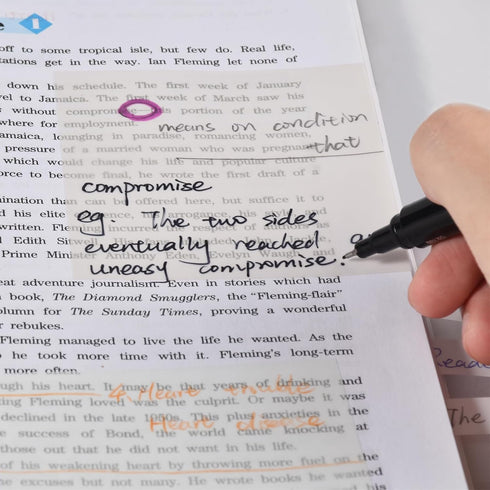 e 1
off to some tropical isle, but few do. Real life,
tations get in the way. Ian Fleming let none of
down his schedule. The first week of January
vel to Jamaica. The first week of March saw his
s without compromise—this portion of the year
where for employment.
means on condition
amaica, lounging in paradise, romancing women,
that
pressure of a married woman who was pregnant
which would change his life and popular culture
orce to become final, he wrote the first draft of a
compromise
mination than can be offered here, but suffice it to
eg: The two sides
d his elite
written. Fleming incurred the respect of authors as
eventually reached
d Edith Sitwell
Prime Minister Anthony Eden, Evelyn Waugh, and
uneasy compromise.
eat adventure journalism. Even in stories which had
book, The Diamond Smugglers, the "Fleming-flair"
olumn for The Sunday Times, proving a wonderful
r rebukes.
Fleming managed to live the life he wanted. As the
o he took more time with it. Fleming's long-term
more often.
ugh his heart. It may be that years of drinking and
Heart trouble
ing Fleming loved was the culprit. Or maybe it was
declined in the late 1950s. This plus anxieties in the
Heart disease
e success of Bond, the world came knocking at
those out that he did not want in his life.
of his weakening heart by throwing more fuel on the
he excuses but not many. He wrote books he wanted
Reade
The